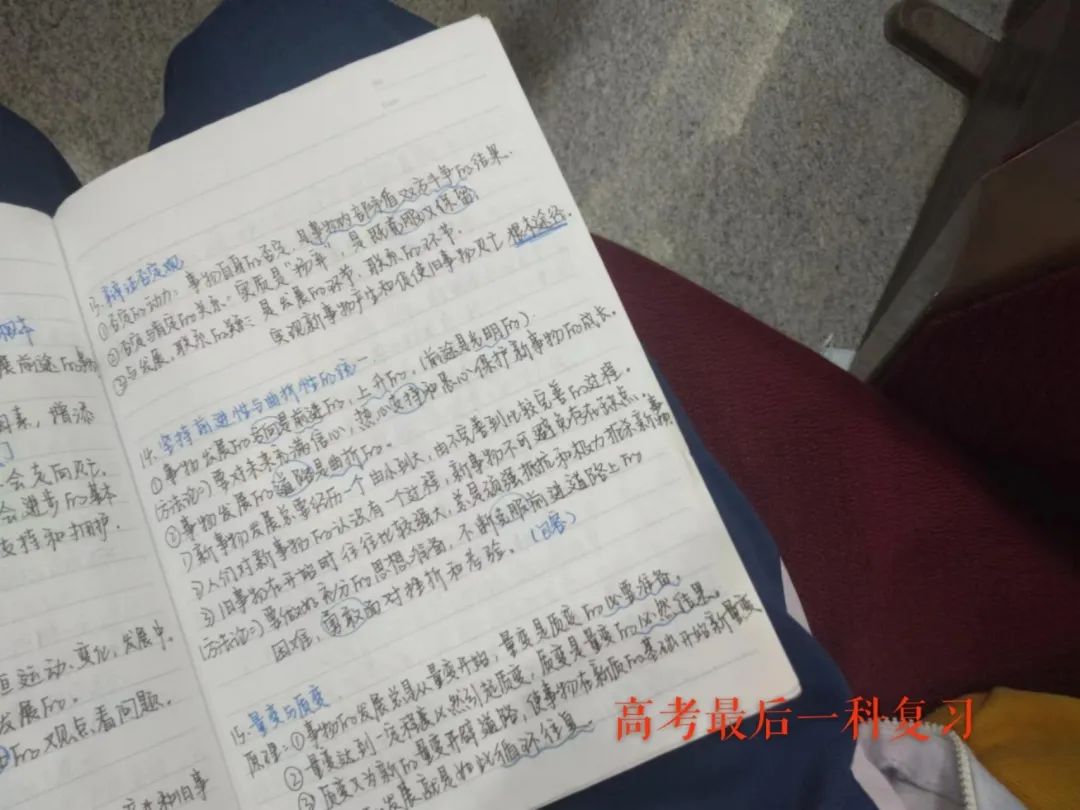 本
展前途的事物
因素，增添
会走向灭亡。
会进步的基本
支持和拥护.
恒运动、变化、发展中.
发展的.
的观点看问题.
13. 辩证否定观
①否定的动力：事物自身的否定，是事物内部矛盾双方斗争的结果.
②否定与肯定的关系：实质是"扬弃"，是既克服又保留.
③与发展、联系的关系：是发展的环节、联系的环节.
实现新事物产生和促使旧事物灭亡根本途径.
14. 坚持前进性与曲折性的统一
①事物发展的方向是前进的、上升的.（前途是光明的）.
（方法论：）要对未来充满信心，热心支持和悉心保护新事物的成长.
②事物发展的道路是曲折的.
1）新事物发展总要经历一个由小到大，由不完善到比较完善的过程.
2）人们对新事物的认识有一个过程，新事物不可避免存在弱点.
3）旧事物在开始时往往比较强大，总是顽强抵抗和极力扼杀新事物
（方法论：）要做好充分的思想准备，不断克服前进道路上的
困难，勇敢面对挫折和考验.（必答）
15. 量变与质变
原理：①事物的发展总是从量变开始，量变是质变的必要准备
②量变达到一定程度必然引起质变，质变是量变的必然结果.
③质变又为新的量变开辟道路，使事物在新质的基础上开始新量变
发展就是如此循环往复.
高考最后一科复习